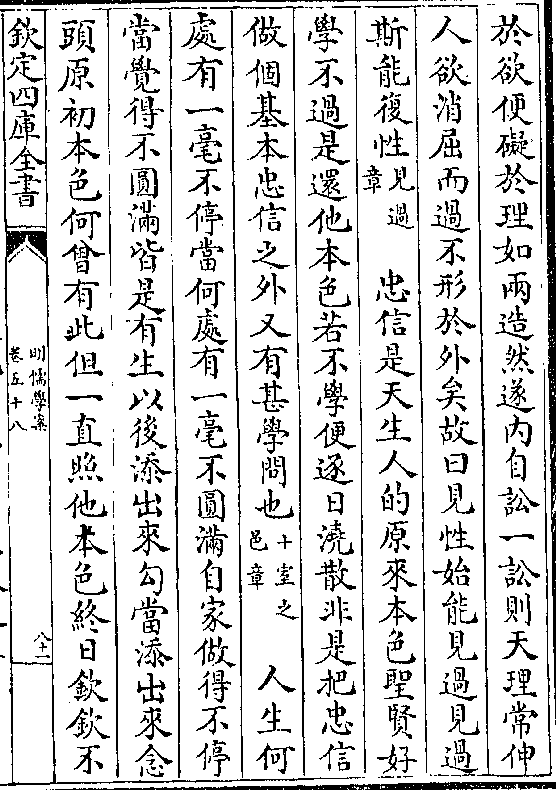 於欲便礙於理如兩造然遂内自訟一訟則天理常伸
人欲消屈而過不形於外矣故曰見性始能見過見過
斯能復性見過章　忠信是天生人的原來本色聖賢好
學不過是還他本色若不學便逐日澆散非是把忠信
做個基本忠信之外又有甚學問也十室之邑章　人生何
處有一毫不停當何處有一毫不圓滿自家做得不停
當覺得不圓滿皆是有生以後添出來勾當添出來念
頭原初本色何曾有此但一直照他本色終日欽欽不
欽定四庫全書
明儒學案
卷五十八